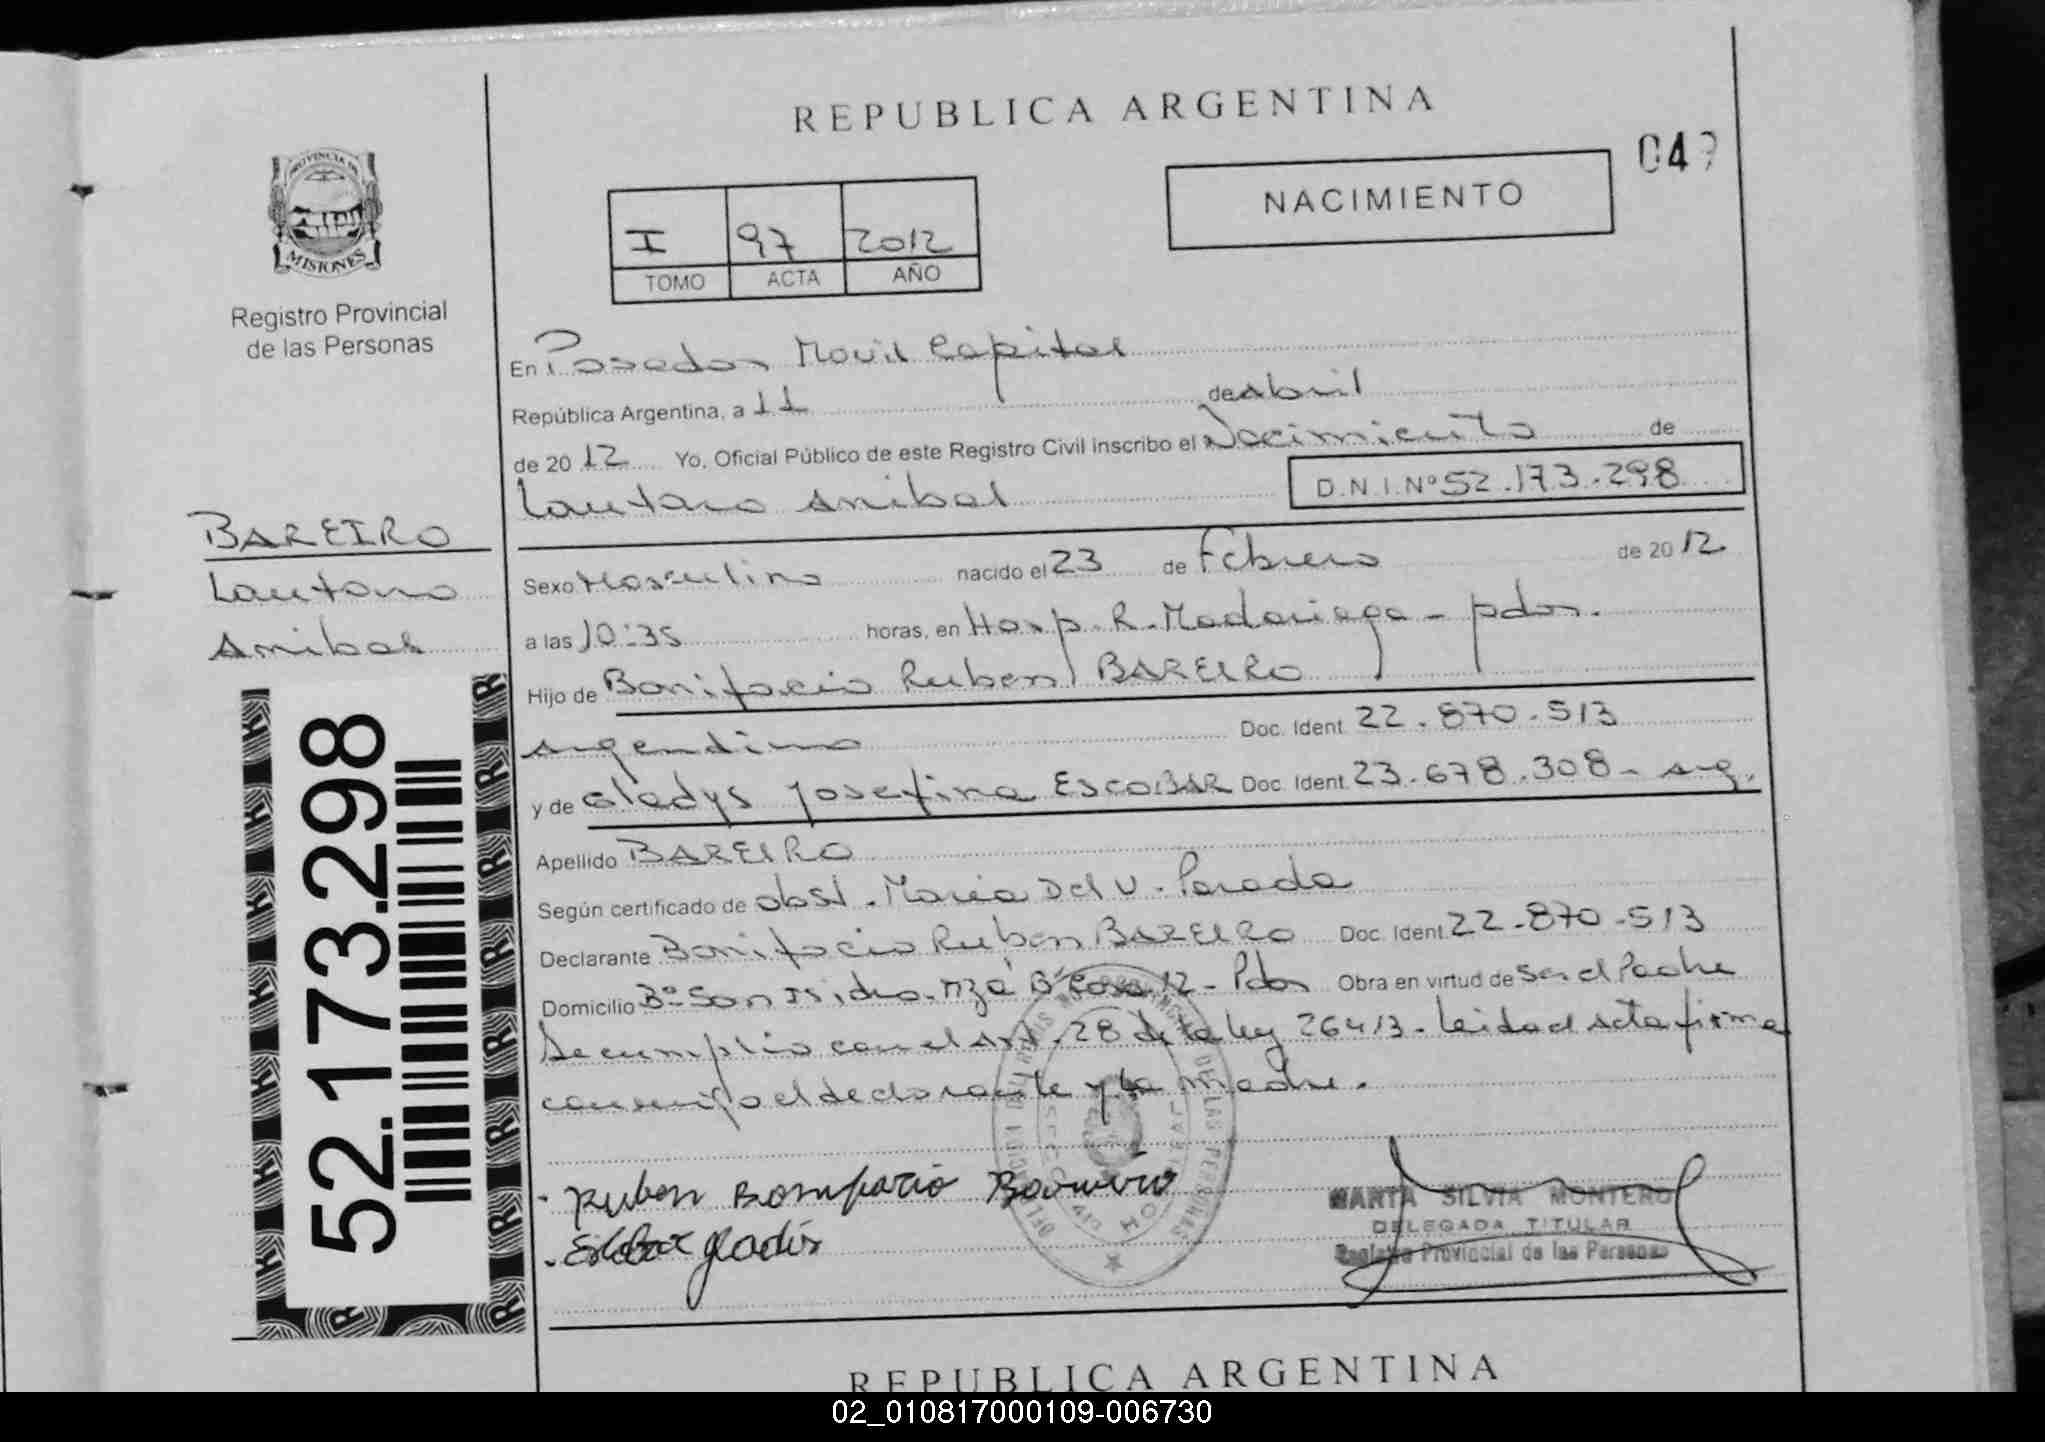 REPUBLICA ARGENTINA
049
PROVINCIA DE
MISIONES
Registro Provincial
de las Personas
NACIMIENTO
I 97 2012
TOMO ACTA AÑO
En Posadas Movil Capital
República Argentina, a 11 de abril
de 20 12 Yo, Oficial Público de este Registro Civil inscribo el Nacimiento de
Lautaro Anibal D.N.I.Nº 52.173.298
BAREIRO
Lautaro
Anibal
Sexo Masculino nacido el 23 de Febrero de 20 12
a las 10:35 horas, en Hosp. R. Madariaga - pdas.
Hijo de Bonifacio Ruben BAREIRO
argentino Doc. Ident. 22.870.513
y de Gladys Josefina ESCOBAR Doc. Ident. 23.678.308 - arg.
Apellido BAREIRO
Según certificado de obst. Maria Del V. Parada
Declarante Bonifacio Ruben BAREIRO Doc. Ident. 22-870-513
Domicilio Bº San Isidro. Mza B' Casa 12 - Pdas Obra en virtud de Ser el Padre
Se cumplio con el Art. 28 de la ley 26413. Leida el Acta firma
conmigo el declarante y la madre.
52.173.298
Ruben Bonifacio Bareiro
Escobar gladis
MARTA SILVIA MONTERO
DELEGADA TITULAR
Registro Provincial de las Personas
REPUBLICA ARGENTINA
02_010817000109-006730